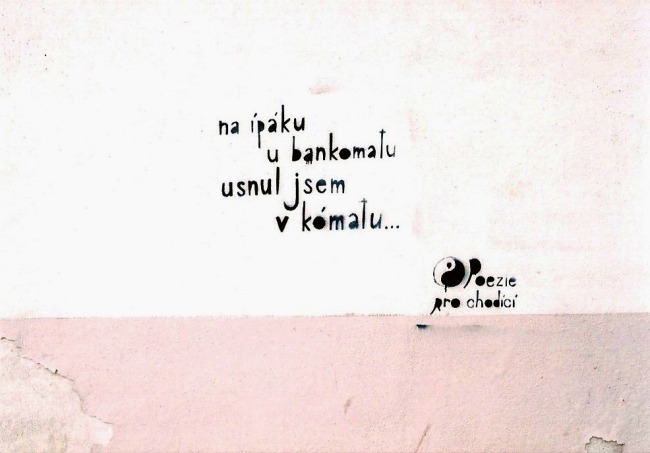 na ípáku
u bankomatu
usnul jsem
v kómatu...
Poezie
pro chodící